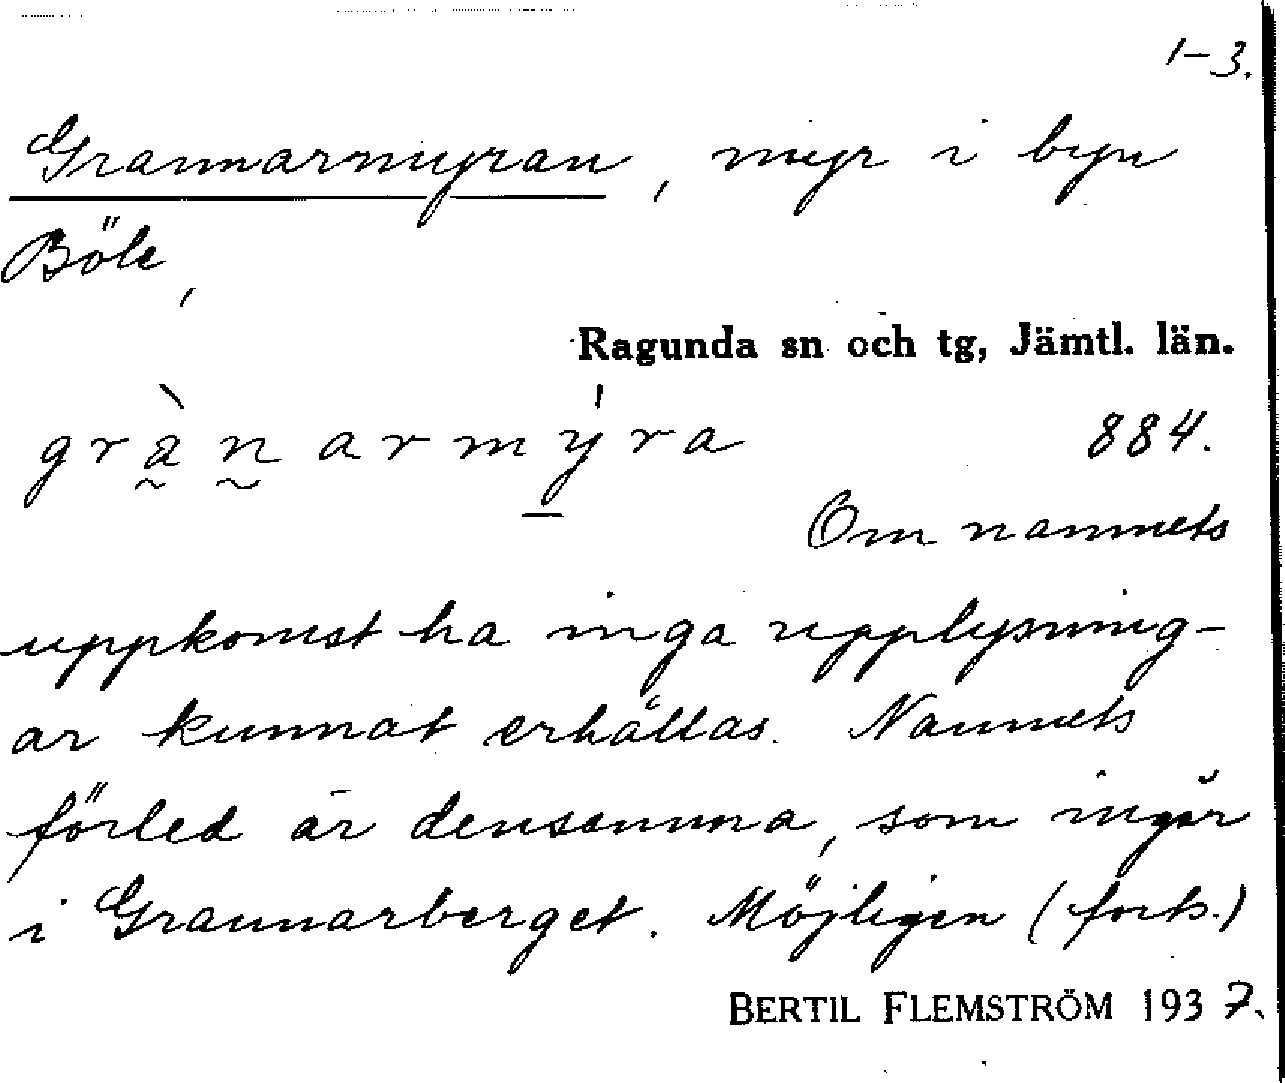 1-3.
Grannarmyran, myr i byn
Böle,
Ragunda sn och tg, Jämtl. län.
grànarmýra 884.
Om namnets
uppkomst ha inga upplysning-
ar kunnat erhållas. Namnets
förled är densamma, som ingår
i Grannarberget. Möjligen (forts.)
BERTIL FLEMSTRÖM 1937.